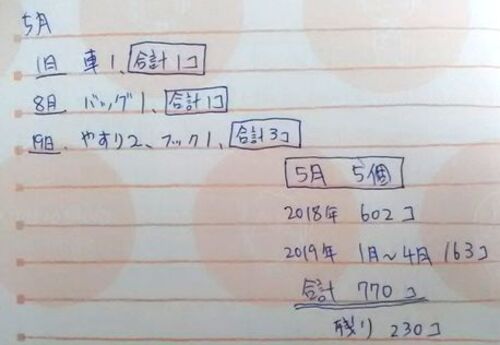 5月
1日 車1、合計1コ
8日 バッグ1、合計1コ
19日、やすり2、フック1、合計3コ
5月 5個
2018年 602コ
2019年 1月～4月 163コ
合計 770コ
残り 230コ